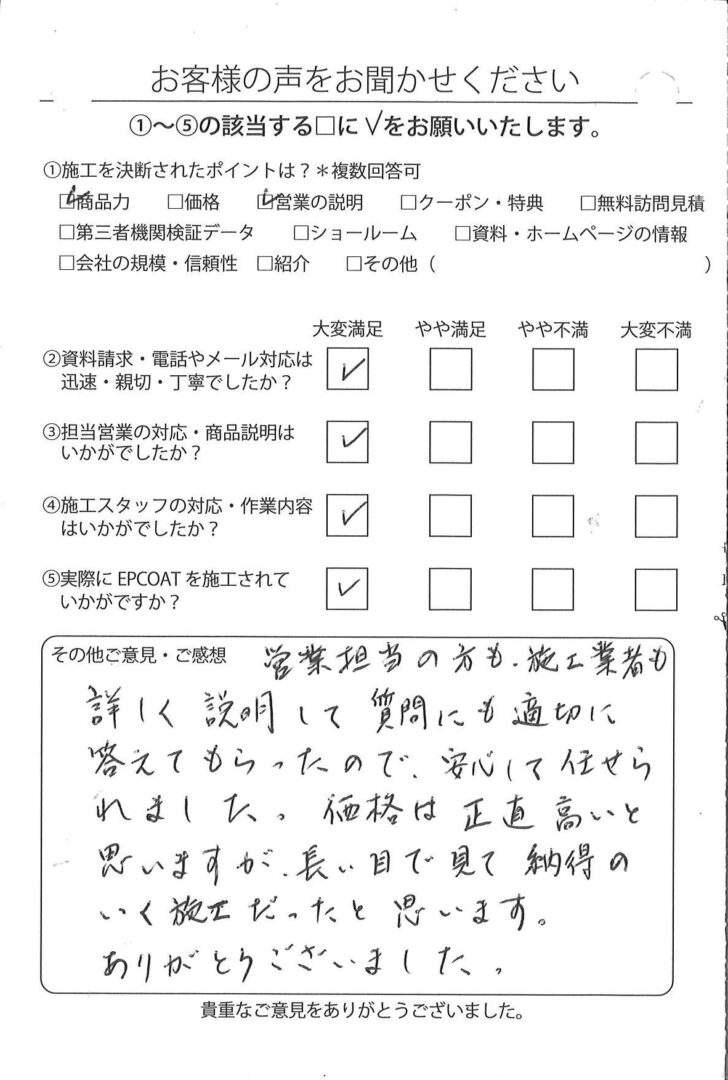 お客様の声をお聞かせください
①～⑤の該当する□に✓をお願いいたします。
①施工を決断されたポイントは？＊複数回答可
☑商品力 □価格 ☑営業の説明 □クーポン・特典 □無料訪問見積
□第三者機関検証データ □ショールーム □資料・ホームページの情報
□会社の規模・信頼性 □紹介 □その他（ ）
大変満足 やや満足 やや不満 大変不満
②資料請求・電話やメール対応は
迅速・親切・丁寧でしたか？ ☑ □ □ □
③担当営業の対応・商品説明は
いかがでしたか？ ☑ □ □ □
④施工スタッフの対応・作業内容
はいかがでしたか？ ☑ □ □ □
⑤実際に EPCOAT を施工されて
いかがですか？ ☑ □ □ □
その他ご意見・ご感想 営業担当の方も、施工業者も
詳しく説明して質問にも適切に
答えてもらったので、安心して任せら
れました。価格は正直高いと
思いますが、長い目で見て納得の
いく施工だったと思います。
ありがとうございました。
貴重なご意見をありがとうございました。